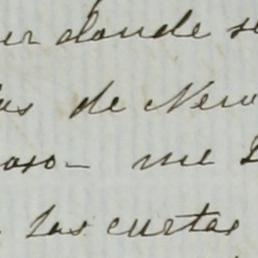 er donde se
as de New
oso — me
las cartas